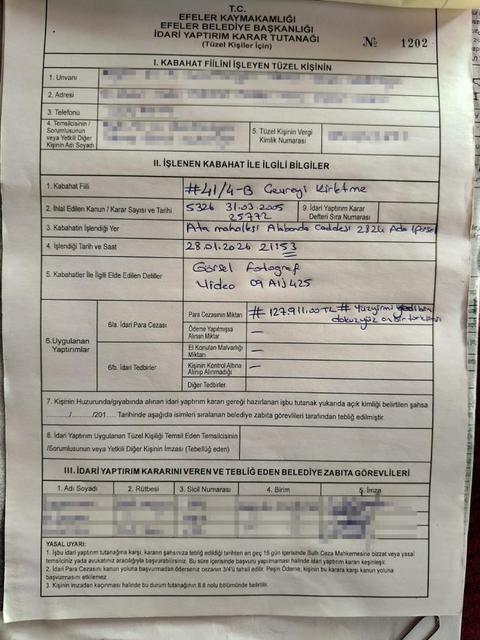 T.C.
EFELER KAYMAKAMLIĞI
EFELER BELEDİYE BAŞKANLIĞI
İDARİ YAPTIRIM KARAR TUTANAĞI
(Tüzel Kişiler İçin)
№ 1202
I. KABAHAT FİİLİNİ İŞLEYEN TÜZEL KİŞİNİN
1. Unvanı
2. Adresi
3. Telefonu
4. Temsilcisinin / Sorumlusunun veya Yetkili Diğer Kişinin Adı Soyadı
5. Tüzel Kişinin Vergi Kimlik Numarası
II. İŞLENEN KABAHAT İLE İLGİLİ BİLGİLER
1. Kabahat Fiili #41/4-B Çevreyi Kirletme
2. İhlal Edilen Kanun / Karar Sayısı ve Tarihi 5326 31.03.2005 25772
9. İdari Yaptırım Karar Defteri Sıra Numarası
3. Kabahatin İşlendiği Yer Ata mahallesi Alabanda Caddesi 2824 Ada
4. İşlendiği Tarih ve Saat 28.01.2026 21153
5. Kabahatler İle İlgili Elde Edilen Deliller Görsel Fotoğraf
Video 09 AIJ425
6.Uygulanan Yaptırımlar
6/a. İdari Para Cezası
Para Cezasının Miktarı #127.911.00TL#
Ödeme Yapılmışsa Alınan Miktar —
6/b. İdari Tedbirler
El Konulan Malvarlığı Miktarı —
Kişinin Kontrol Altına Alınıp Alınmadığı —
Diğer Tedbirler
7. Kişinin Huzurunda/gıyabında alınan idari yaptırım kararı gereği hazırlanan işbu tutanak yukarıda açık kimliği belirtilen şahsa
....../....../201.... Tarihinde aşağıda isimleri sıralanan belediye zabıta görevlileri tarafından tebliğ edilmiştir.
8. İdari Yaptırım Uygulanan Tüzel Kişiliği Temsil Eden Temsilcisinin
/Sorumlusunun veya Yetkili Diğer Kişinin İmzası (Tebellüğ eden)
III. İDARİ YAPTIRIM KARARINI VEREN VE TEBLİĞ EDEN BELEDİYE ZABITA GÖREVLİLERİ
1. Adı Soyadı 2. Rütbesi 3. Sicil Numarası 4. Birim 5. İmza
YASAL UYARI:
1. İşbu idari yaptırım tutanağına karşı, kararın şahsınıza tebliğ edildiği tarihten en geç 15 gün içerisinde Sulh Ceza Mahkemesine bizzat veya yasal
temsilciniz yada avukatınız aracılığıyla başvurabilirsiniz. Bu süre içerisinde başvuru yapılmaması halinde idari yaptırım kararı kesinleşir.
2. İdari Para Cezasını kanun yoluna başvurmadan öderseniz cezanın 3/4'ü tahsil edilir. Peşin Ödeme; kişinin bu karara karşı kanun yoluna
başvurmasını etkilemez
3. Kişinin imzadan kaçınması halinde bu durum tutanağının 8.8 nolu bölümünde belirtilir.